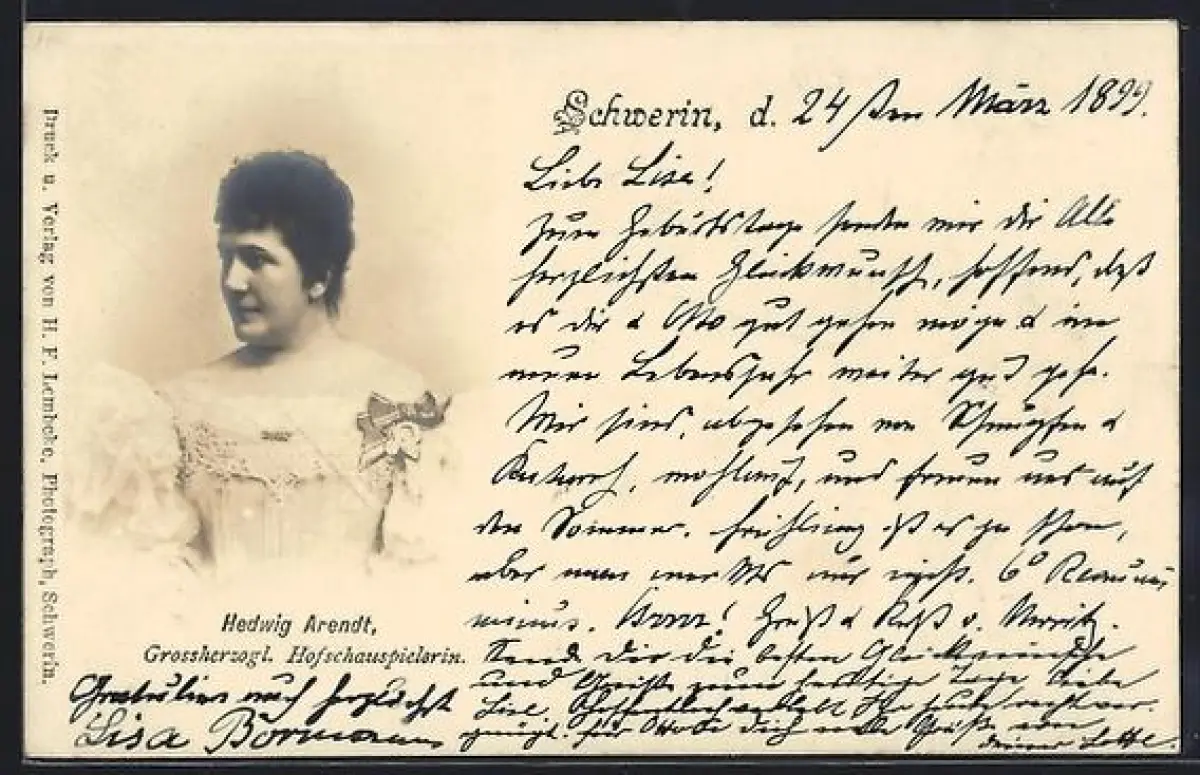 Druck u. Verlag von H. F. Lembcke, Photograph, Schwerin.
Schwerin, d. 24sten März 1899.
Liebe Lisa!
Zum Geburtstage senden wir dir Alle
herzlichsten Glückwunsch, hoffend, daß
es dir & Otto gut gehen möge & im
neuen Lebensjahr weiter gut geh.
Wir sind, abgesehen von Schnupfen &
Katarrh, wohlauf, und freuen uns auf
den Sommer. Frühling ist es ja schon,
aber man merkts nur nicht. 6° Reaumur
minus. Brrr! Gruß & Kuß v. Moritz.
Sende Dir die besten Glückwünsche
und Grüße zum heutigen Tage liebe
Lise. Ihr recht ver-
gnügt. für Otto & dich viele Grüße von
deiner Lotte.
Hedwig Arendt,
Grossherzogl. Hofschauspielerin.
Gratuliere auch herzlichst
Lisa Bormann